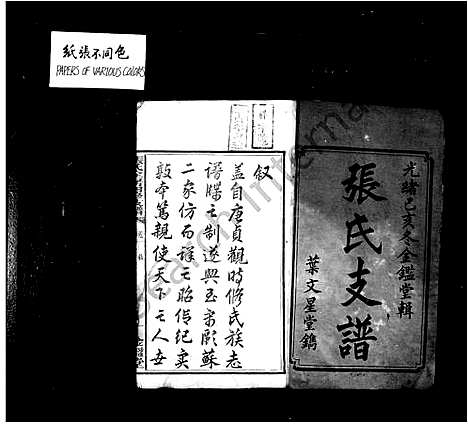 紙張不同色
PAPERS OF VARIOUS COLORS
光緒己亥冬金鑑堂輯
張氏支譜
葉文星堂鐫
叙
盖自唐貞觀時修氏族志
譜牒之制遂興至宋歐蘇
二家仿而詳之昭信紀实
敦本篤親使天下之人女